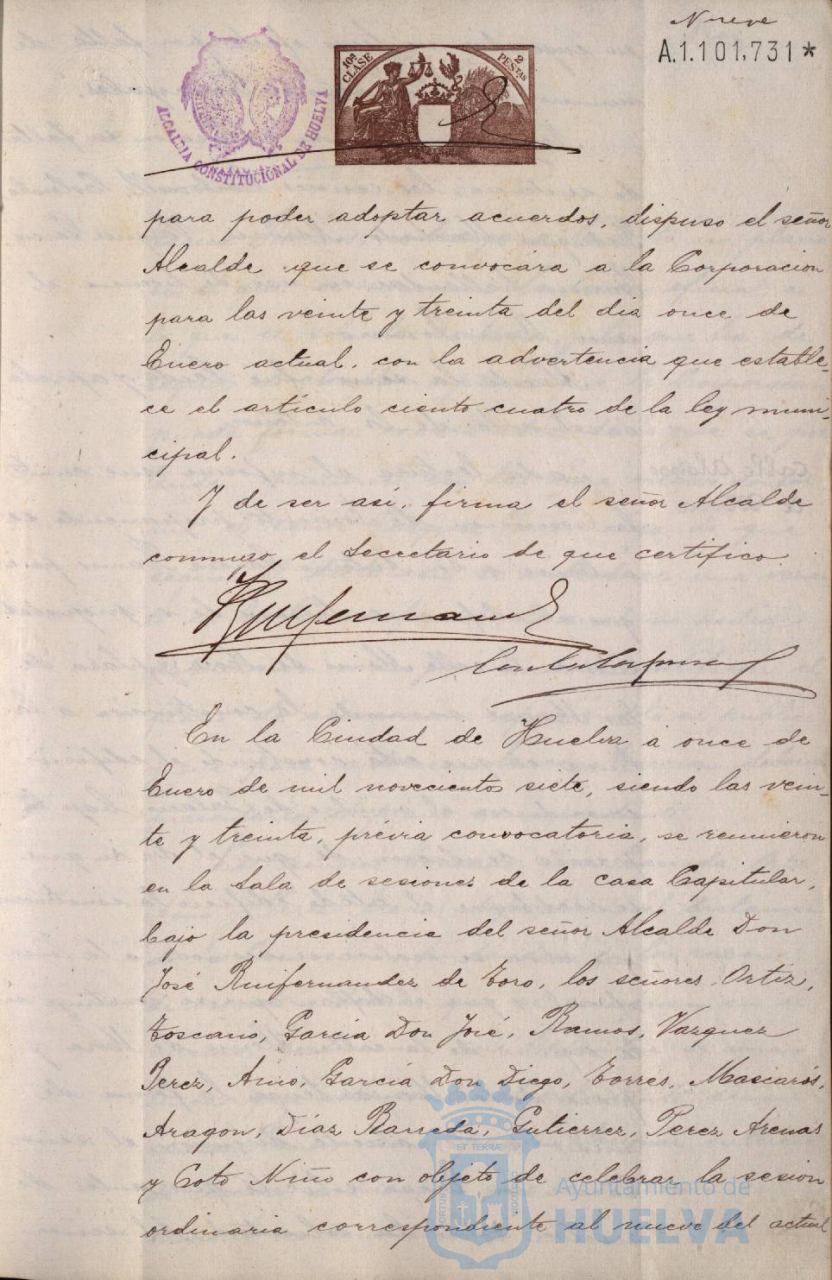 Nueve
A.1.101,731*
10ª CLASE
2 PESTAS
ALCALDIA CONSTITUCIONAL DE HUELVA
para poder adoptar acuerdos, dispuso el señor
Alcalde que se convocára a la Corporacion
para las veinte y treinta del dia once de
Enero actual, con la advertencia que estable-
ce el artículo ciento cuatro de la ley muni-
cipal.
Y de ser así, firma el señor Alcalde
conmigo, el Secretario de que certifico.
En la Ciudad de Huelva á once de
Enero de mil novecientos siete, siendo las vein-
te y treinta, prévia convocatoria, se reunieron
en la Sala de sesiones de la casa Capitular,
bajo la presidencia del señor Alcalde Don
José Ruifernandez de Toro, los señores Ortiz,
Toscano, García Don José, Ramos, Vazquez
Perez, Amo, García Don Diego, Torres, Mascarós,
Aragon, Díaz Barreda, Gutierrez, Perez Arenas
y Coto Niño con objeto de celebrar la sesion
ordinaria correspondiente al nueve del actual
Ayuntamiento de
HUELVA